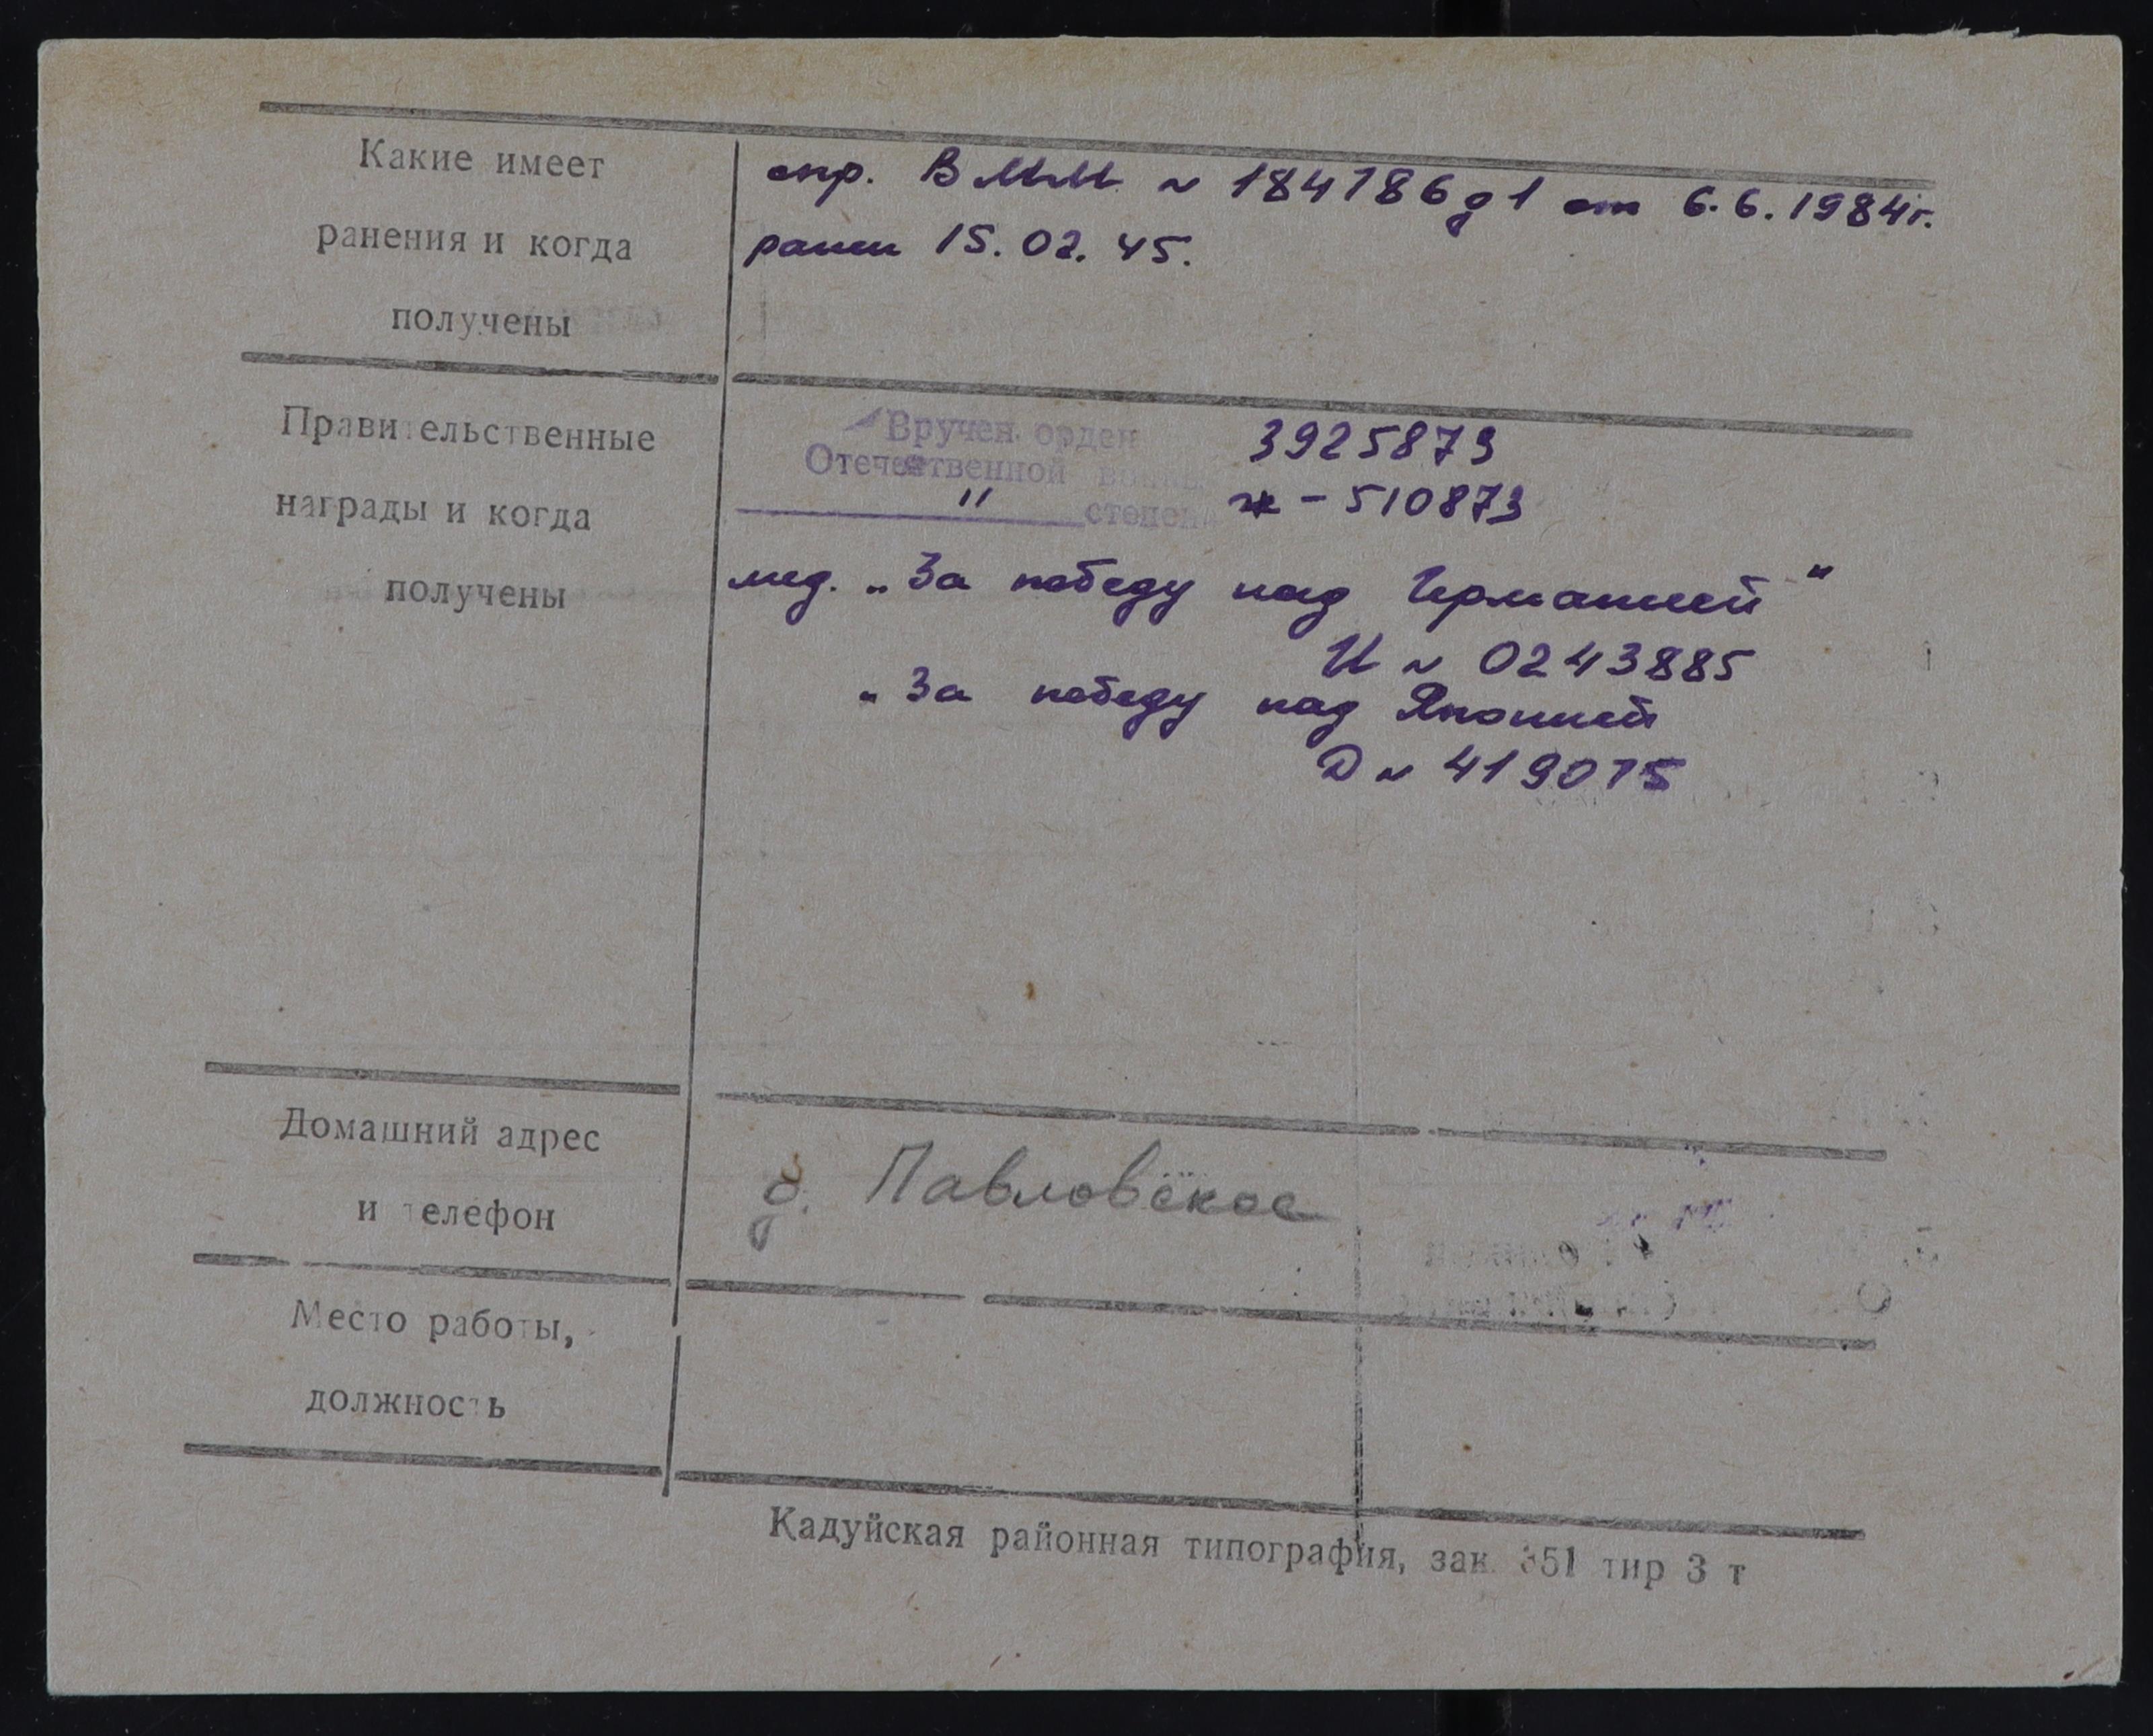 Какие имеет
ранения и когда
получены
спр. ВММ № 184186д1 от 6.6.1984г.
ранен 15.02.45.
Правительственные
награды и когда
получены
Вручен орден 3925879
Отечественной войны
" степени ж - 510873
мед. „За победу над Германией"
И № 0243885
„За победу над Японией
Д № 419015
Домашний адрес
и телефон
д. Павловское
Место работы,
должность
Кадуйская районная типография, зак. 351 тир 3 т